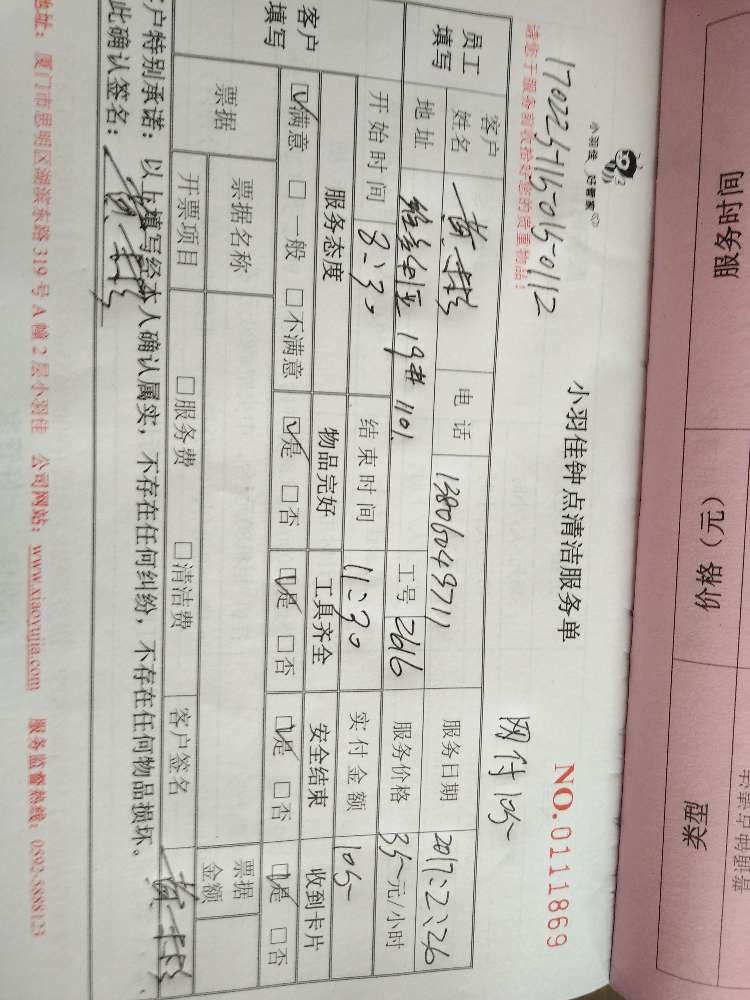 小羽佳 好管家
17022341150150112
请您于服务前收拾好您的贵重物品！
小羽佳钟点清洁服务单
网付105
NO.0111869
员工填写
客户姓名
电话 13806049711
服务日期 2017:2:26
地址 19# 1101
工号 2616
服务价格 35元/小时
开始时间 8:30
结束时间 11:30
实付金额 105
客户填写
服务态度 物品完好 工具齐全 安全结束 收到卡片
☑满意 □一般 □不满意 ☑是 □否 ☑是 □否 ☑是 □否 ☑是 □否
票据
票据名称
票据金额
开票项目 □服务费 □清洁费 客户签名
户特别承诺：以上填写经本人确认属实，不存在任何纠纷，不存在任何物品损坏。
此确认签名：
地址：厦门市思明区湖滨东路319号A幢2层小羽佳 公司网站：www.xiaoyujia.com 服务监督热线：0592-5888123
服务时间
价格（元）
类型
普通钟点清洁